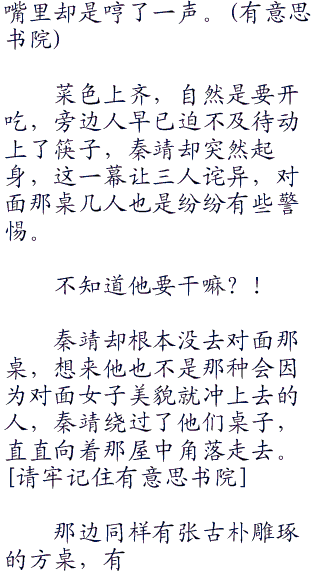 嘴里却是哼了一声。(有意思
书院)
菜色上齐，自然是要开
吃，旁边人早已迫不及待动
上了筷子，秦靖却突然起
身，这一幕让三人诧异，对
面那桌几人也是纷纷有些警
惕。
不知道他要干嘛？！
秦靖却根本没去对面那
桌，想来他也不是那种会因
为对面女子美貌就冲上去的
人，秦靖绕过了他们桌子，
直直向着那屋中角落走去。
[请牢记住有意思书院]
那边同样有张古朴雕琢
的方桌，有